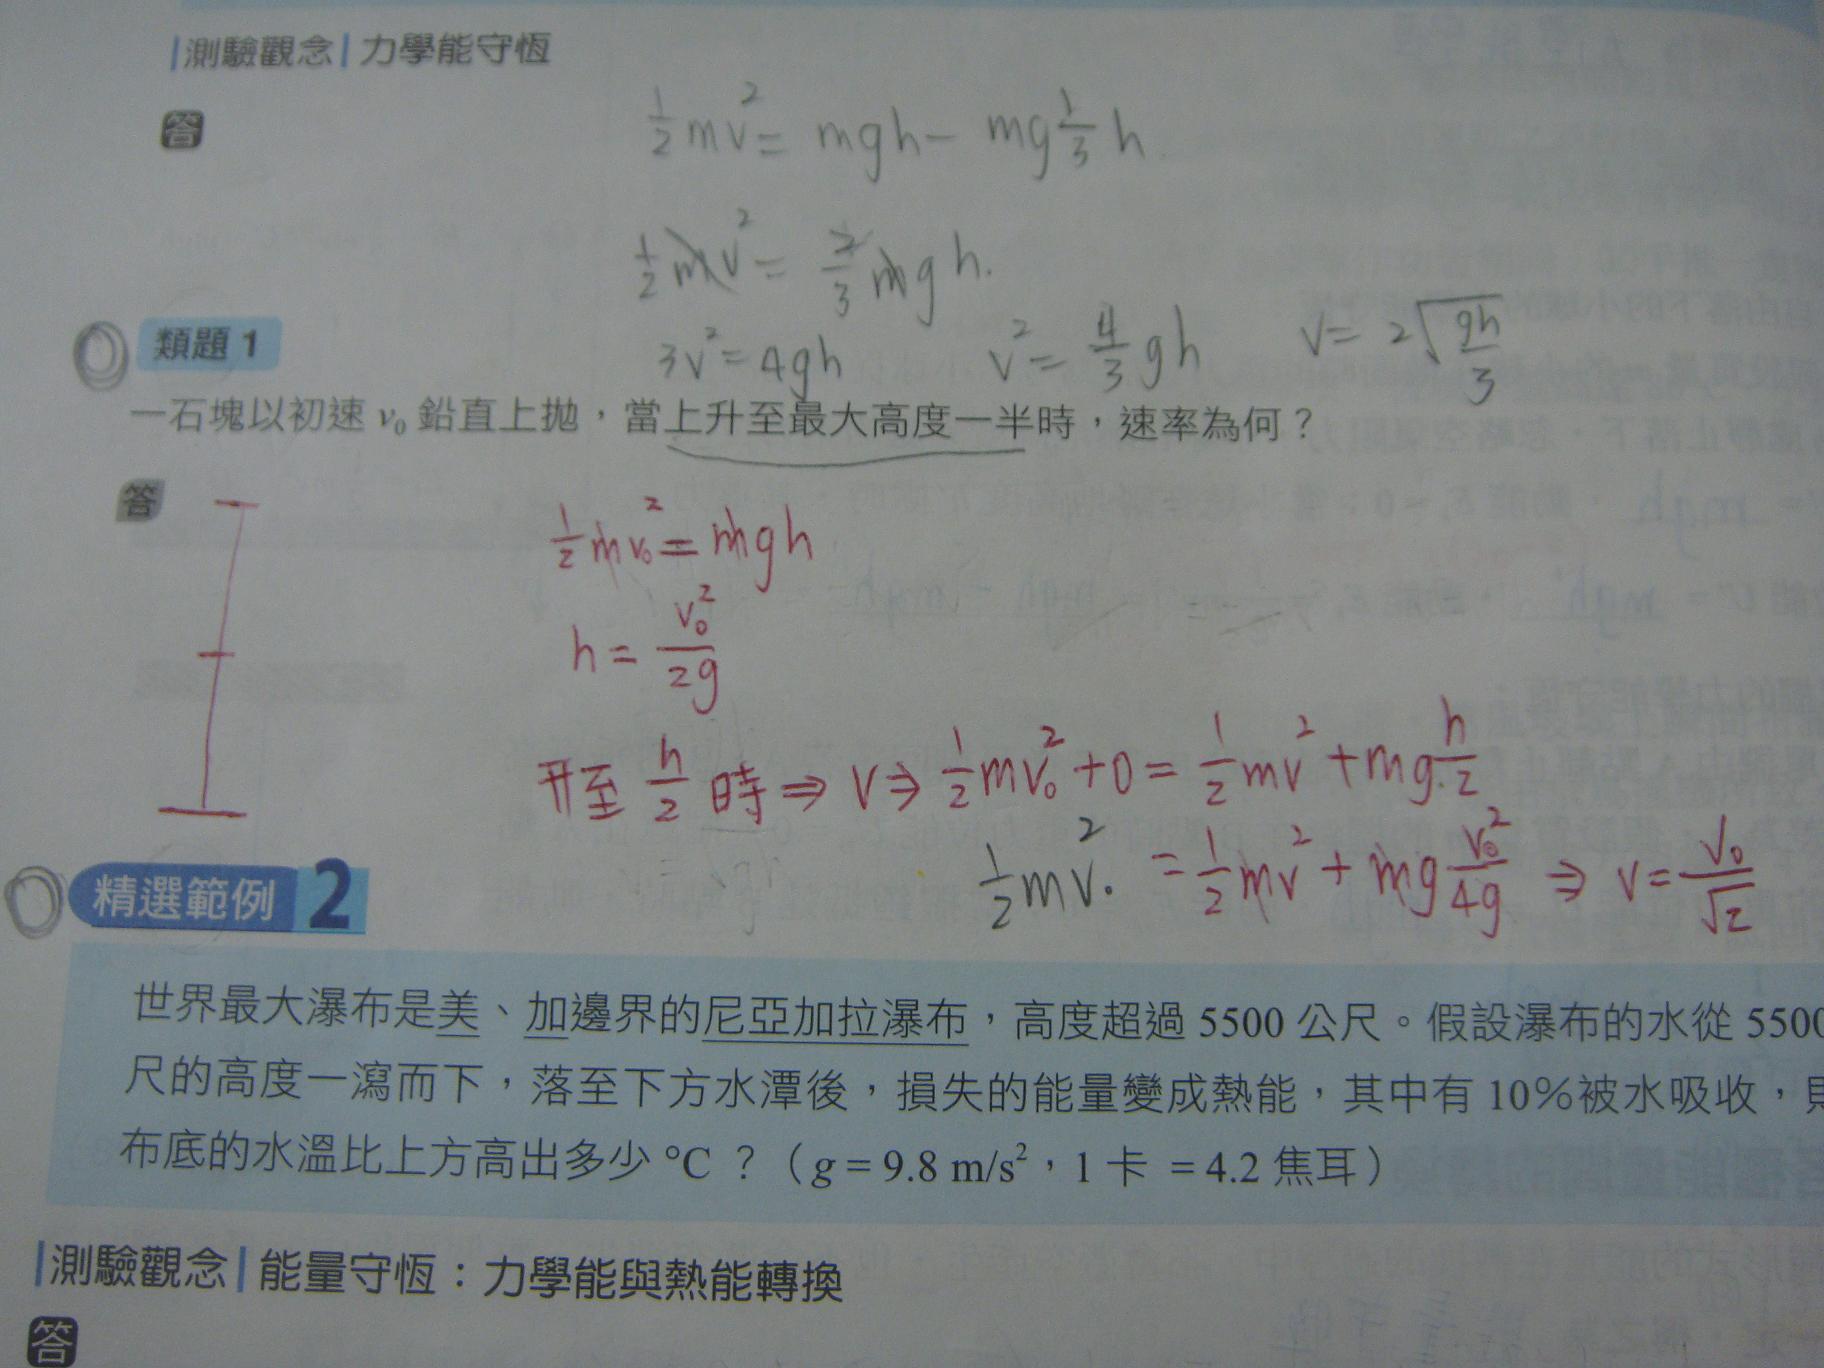 測驗觀念 力學能守恆
答
½mv² = mgh − mg⅓h
½mv² = ⅔mgh.
3v² = 4gh v² = 4/3 gh v = 2√(gh/3)
類題 1
一石塊以初速 v₀ 鉛直上拋，當上升至最大高度一半時，速率為何？
答
½mv₀² = mgh
h = v₀²/2g
升至 h/2 時 ⇒ v ⇒ ½mv₀² + 0 = ½mv² + mg·h/2
½mv₀² = ½mv² + mg v₀²/4g ⇒ v = v₀/√2
精選範例 2
世界最大瀑布是美、加邊界的尼亞加拉瀑布，高度超過 5500 公尺。假設瀑布的水從 5500
尺的高度一瀉而下，落至下方水潭後，損失的能量變成熱能，其中有 10％被水吸收，
布底的水溫比上方高出多少 °C ？（g = 9.8 m/s²，1 卡 = 4.2 焦耳）
測驗觀念 能量守恆：力學能與熱能轉換
答